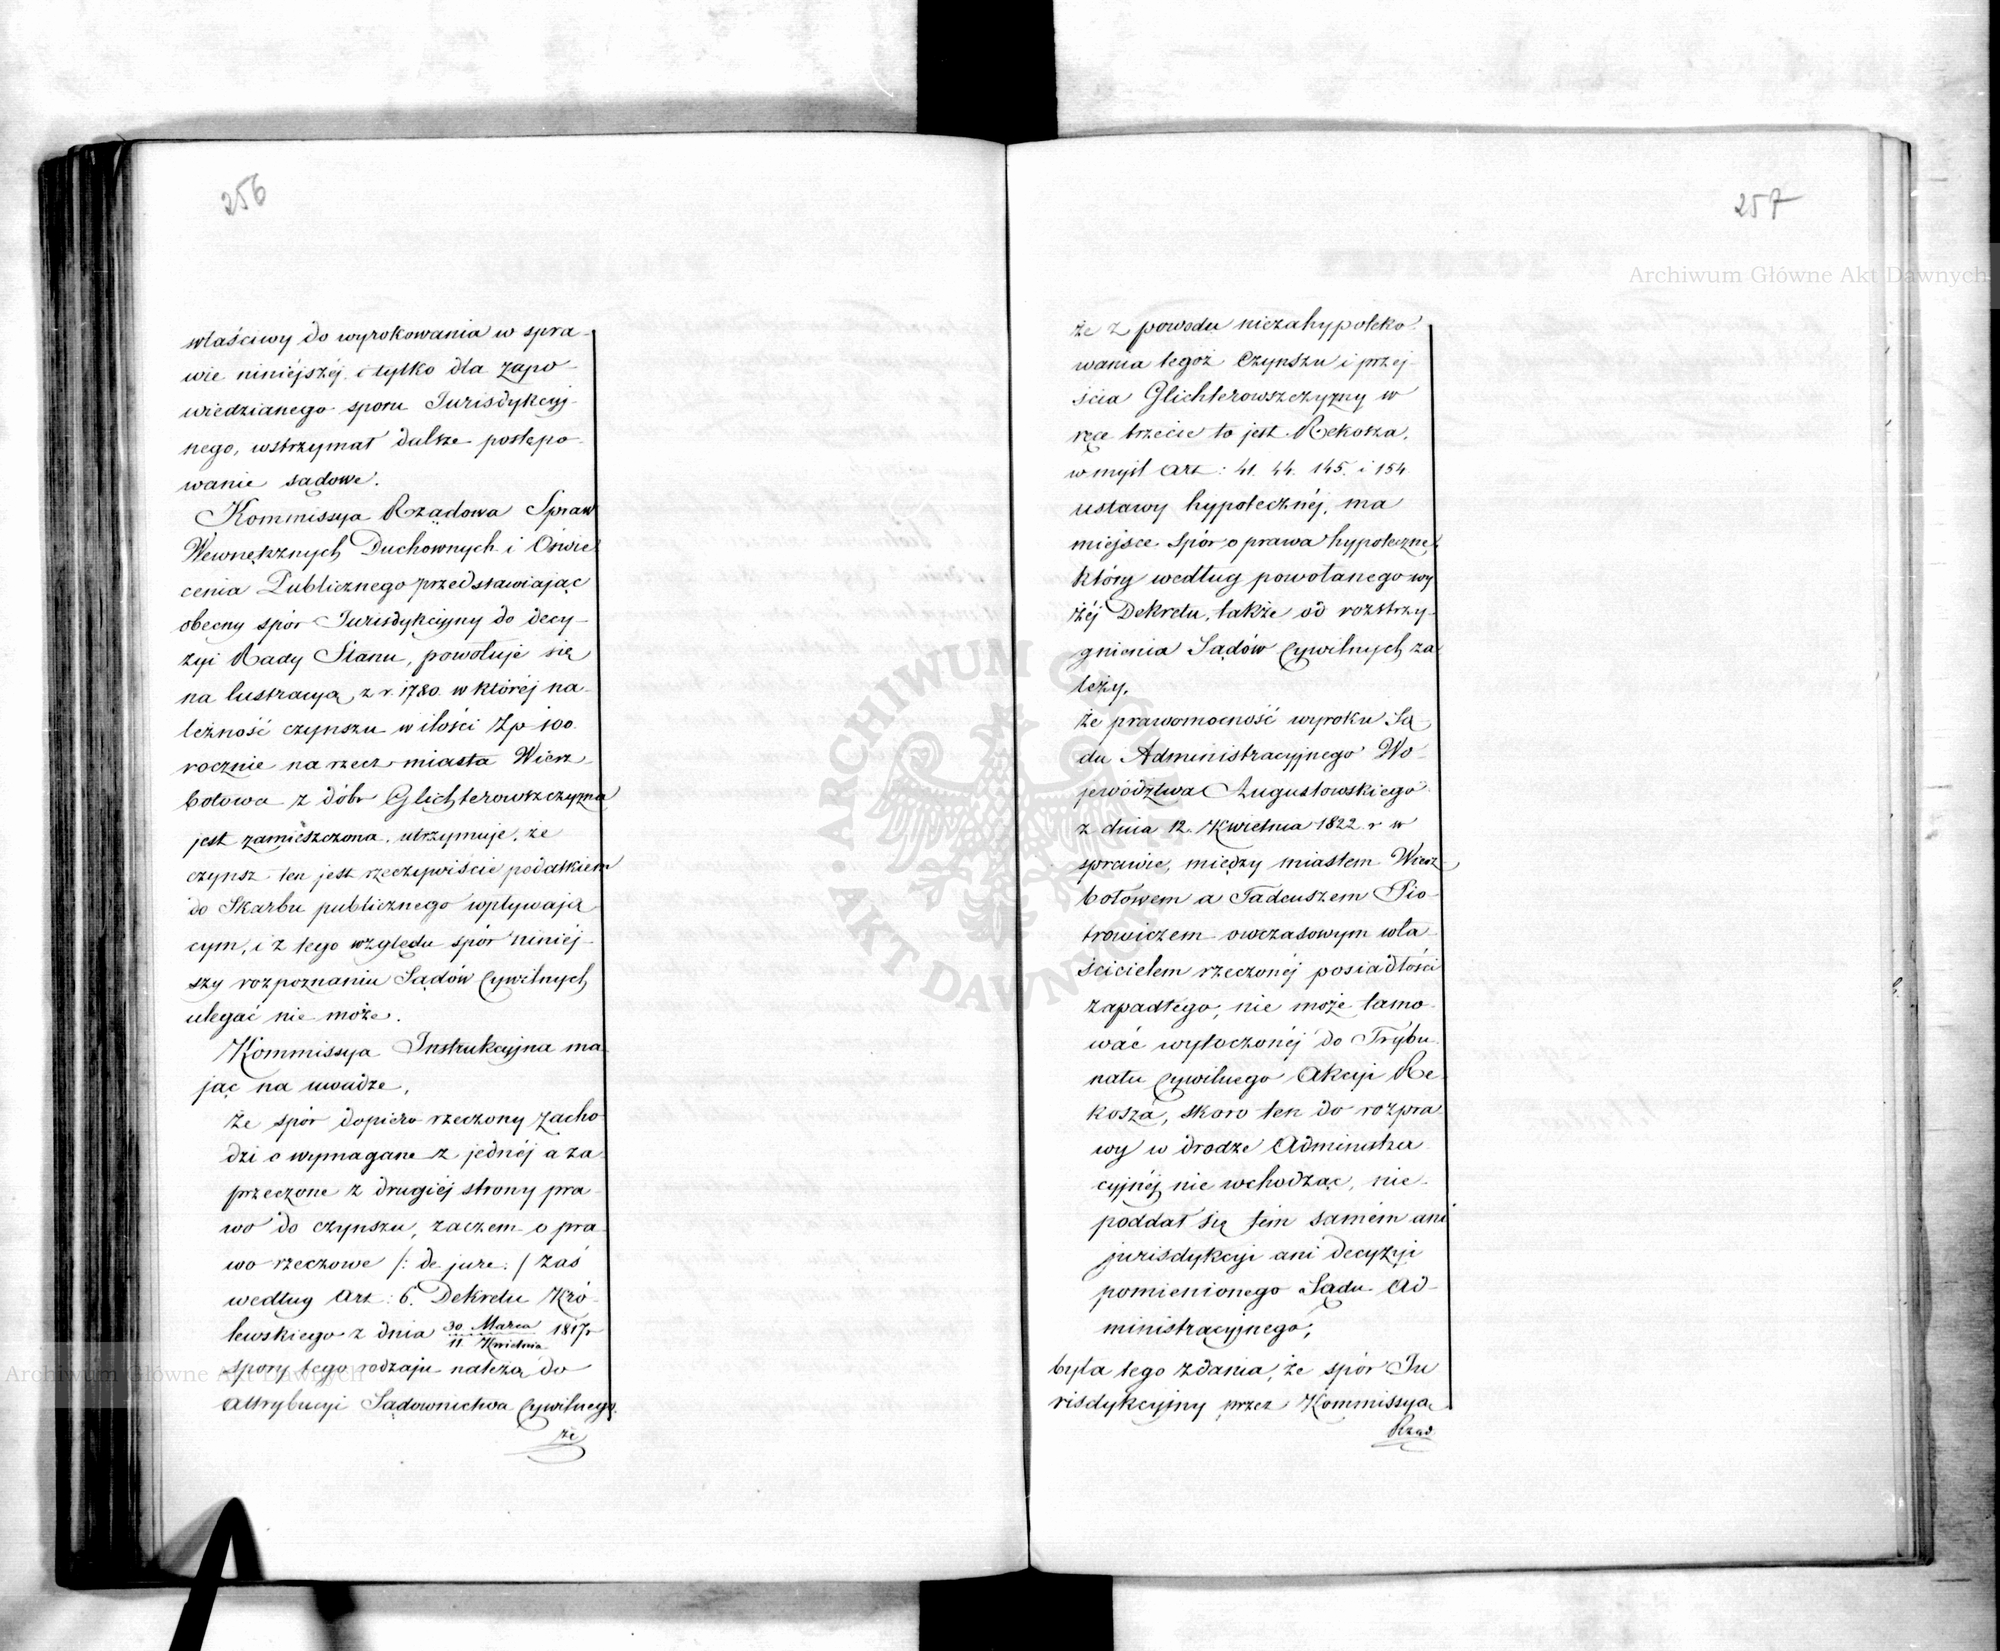 256
właściwy do wyrokowania w spra-
wie niniejszéj i tylko dla zapo-
wiedzianego sporu Jurisdykcyj-
nego, wstrzymał dalsze postępo-
wanie sądowe.
Kommissya Rządowa Spraw
Wewnętrznych Duchownych i Oświe-
cenia Publicznego przedstawiając
obecny spór Jurisdykcyjny do decy-
zyi Rady Stanu, powołuje się
na lustracyą z r. 1780. w któréj na-
leżność czynszu w ilości Złp 100.
rocznie na rzecz miasta Wierz-
bołowa z dóbr Glichterowszczyzna
jest zamieszczona, utrzymuje, że
czynsz ten jest rzeczywiście podatkiem
do Skarbu publicznego wpływają-
cym, i z tego względu spór niniéj-
szy rozpoznaniu Sądów Cywilnych
ulegać nie może.
Kommissya Instrukcyjna ma-
jąc na uwadze,
że spór dopiero rzeczony zacho-
dzi o wymagane z jednéj a za-
przeczone z drugiéj strony pra-
wo do czynszu, zaczem o pra-
wo rzeczowe /: de jure :/ zaś
według Art: 6. Dekretu Kró-
lewskiego z dnia 30 Marca / 11. Kwietnia 1817 r
spory tego rodzaju należą do
Attrybucyi Sądownictwa Cywilnego.
że
257
że z powodu niezahypoteko-
wania tegoż Czynszu i przej-
ścia Glichterowszczyzny w
ręce trzecie to jest Rekosza,
w myśl Art: 41. 44. 145. i 154
ustawy hypotecznéj, ma
miejsce spór o prawa hypoteczne,
który według powołanego wy-
żéj Dekretu, także od rozstrzy-
gnienia Sądów Cywilnych za-
leży.
że prawomocność wyroku Są-
du Administracyjnego Wo-
jewództwa Augustowskiego
z dnia 12. Kwietnia 1822 r w
sprawie, między miastem Wierz-
bołowem a Tadeuszem Pio-
trowiczem owczasowym wła-
ścicielem rzeczonéj posiadłości
zapadłego, nie może tamo-
wać wytoczonéj do Trybu-
nału Cywilnego Akcyi Re-
kosza, skoro ten do rozpra-
wy w drodze Administra-
cyjnéj nie wchodząc, nie
poddał się tém samém ani
jurisdykcyi ani decyzyi
pomienionego Sądu Ad-
ministracyjnego,
była tego zdania, że spór Ju-
risdykcyjny przez Kommissyą
Rząd.
ARCHIWUM GŁÓWNE AKT DAWNYCH
Archiwum Główne Akt Dawnych
Archiwum Główne Akt Dawnych